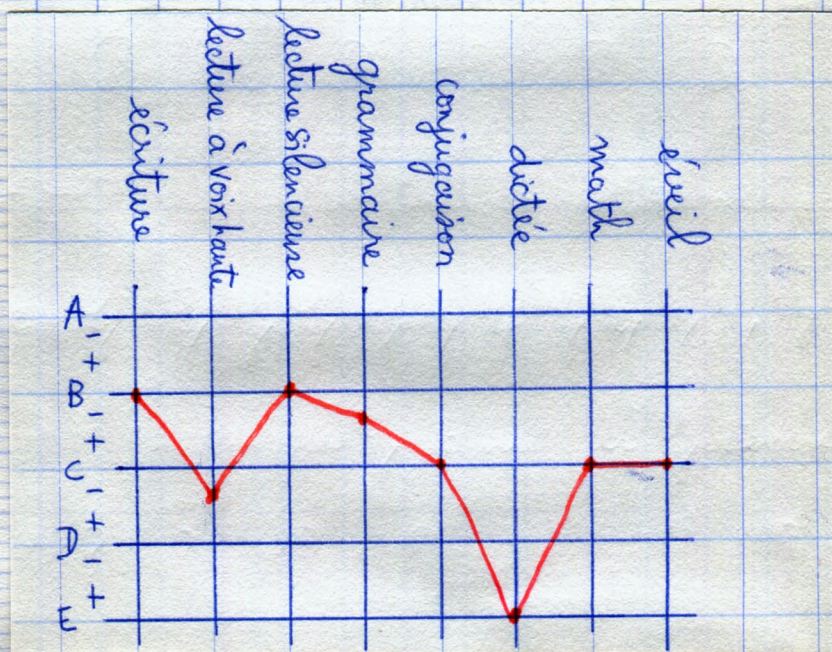 écriture
lecture à voix haute
lecture silencieuse
grammaire
conjugaison
dictée
math
éveil
A
-
+
B
-
+
C
-
+
D
-
+
E